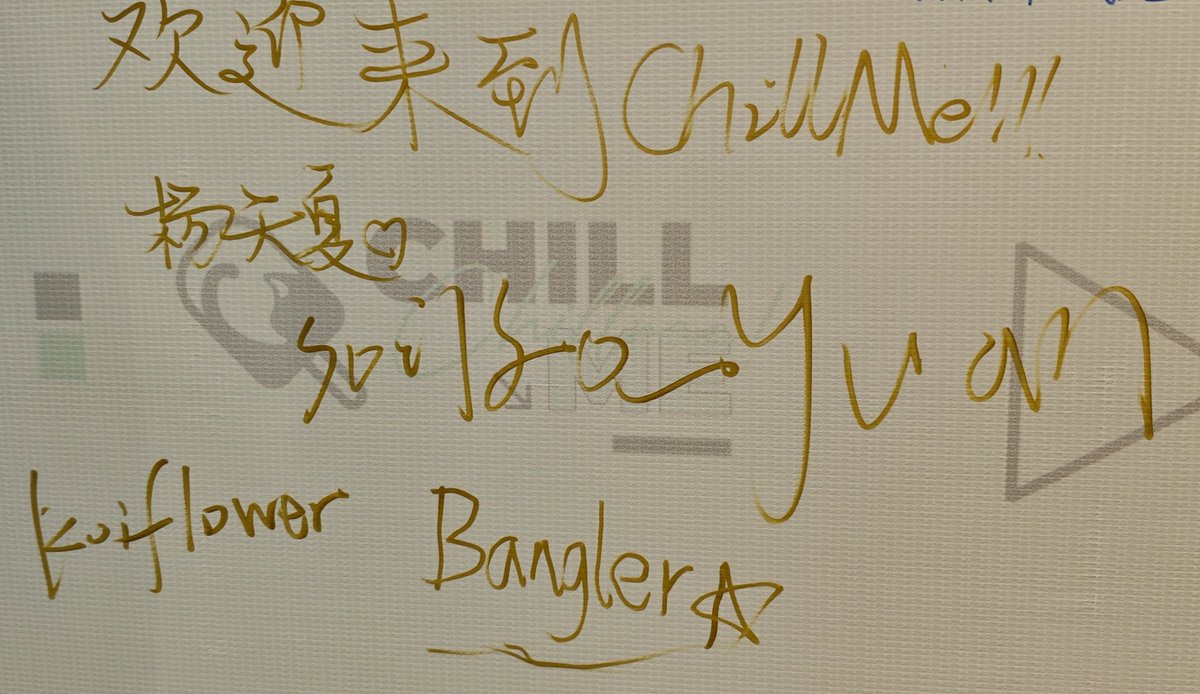 欢迎来到ChillMe!!!
杨天夏♡
CHILL
ME
Yuan
Koiflower Bangler☆